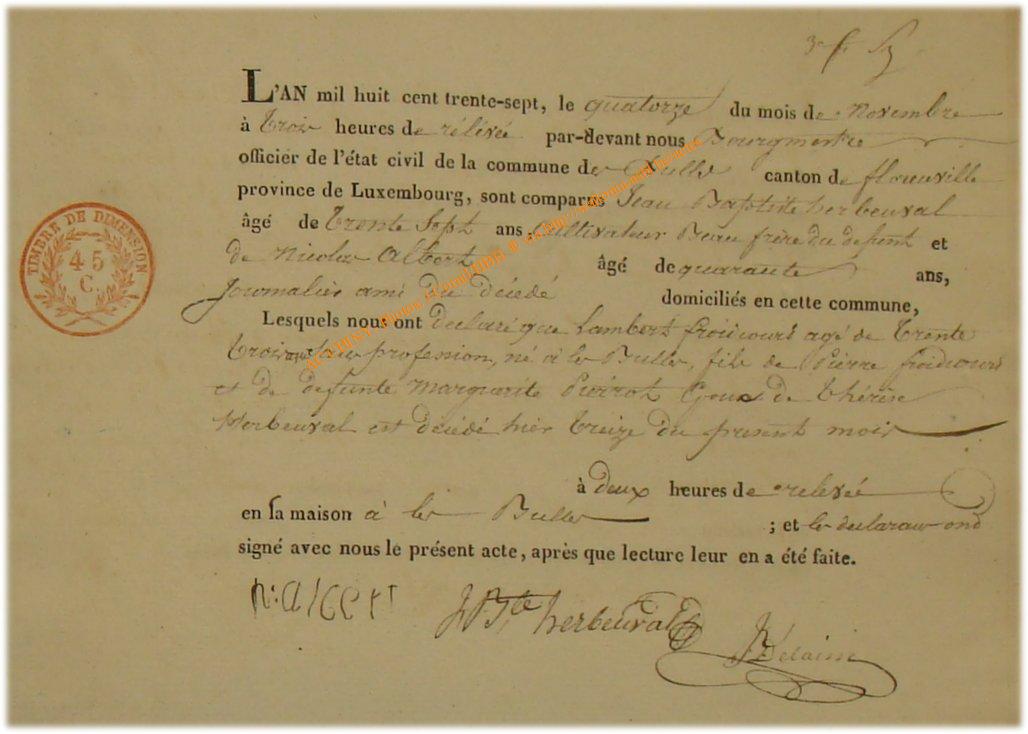 L'AN mil huit cent trente-sept, le quatorze du mois de Novembre
à trois heures de rélévée par-devant nous Bourgmestre
officier de l'état civil de la commune de canton de florenville
province de Luxembourg, sont comparus Jean Baptiste herbeuval
âgé de trente Sept ans, Cultivateur Beau frère du defunt et
de Nicolas Albert âgé de quarante ans,
Journalier ami du décédé domiciliés en cette commune,
Lesquels nous ont declaré que Lambert froidcourt agé de trente
trois ans profession, né à les Bulles, fils de Pierre froidcourt
et de defunte Marguerite Pierrot Epoux de thérèse
Herbeuval est décédé hier treize du present mois
à deux heures de relevée
en sa maison à les Bulles ; et les declarans ond
signé avec nous le présent acte, après que lecture leur en a été faite.
N: Albert
J Bte herbeuval
TIMBRE DE DIMENSION
45
C.